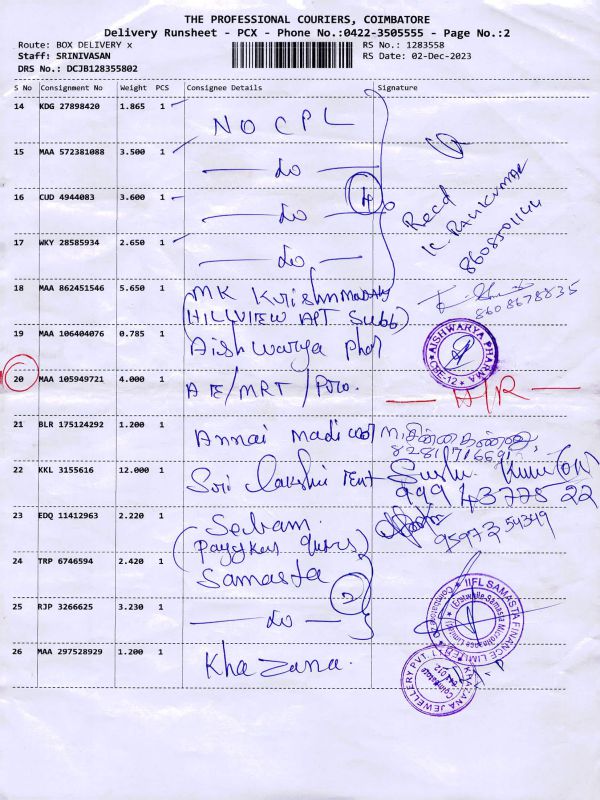 THE PROFESSIONAL COURIERS, COIMBATORE
Delivery Runsheet - PCX - Phone No.:0422-3505555 - Page No.:2
Route: BOX DELIVERY x
RS No.: 1283558
Staff: SRINIVASAN
RS Date: 02-Dec-2023
DRS No.: DCJB128355802
S No Consignment No Weight PCS Consignee Details Signature
14 KDG 27898420 1.865 1 NO CPL
15 MAA 572381088 3.500 1 — do —
16 CUD 4944083 3.600 1 — do — 4
Recd
K. RAVIKUMAR
8608501144
17 WKY 28585934 2.650 1 — do —
18 MAA 862451546 5.650 1 MK Krishnmoorthy
HILLVIEW APT Subb
8608678835
19 MAA 106404076 0.785 1 Aishwarya Phar
AISHWARYA PHARMA
20 MAA 105949721 4.000 1 A TE/MRT/ — A/R —
21 BLR 175124292 1.200 1 Annai
22 KKL 3155616 12.000 1 Sri Lakshmi
999 43775 22
23 EDQ 11412963 2.220 1
95973 54349
24 TRP 6746594 2.420 1 Samasta 2
25 RJP 3266625 3.230 1 — do —
IIFL SAMASTA FINANCE LIMITED
(Erstwhile Samasta Microfinance Limited)
Coimbatore
26 MAA 297528929 1.200 1 Khazana.
KHAZANA JEWELLERY PVT. LTD.
Coimbatore